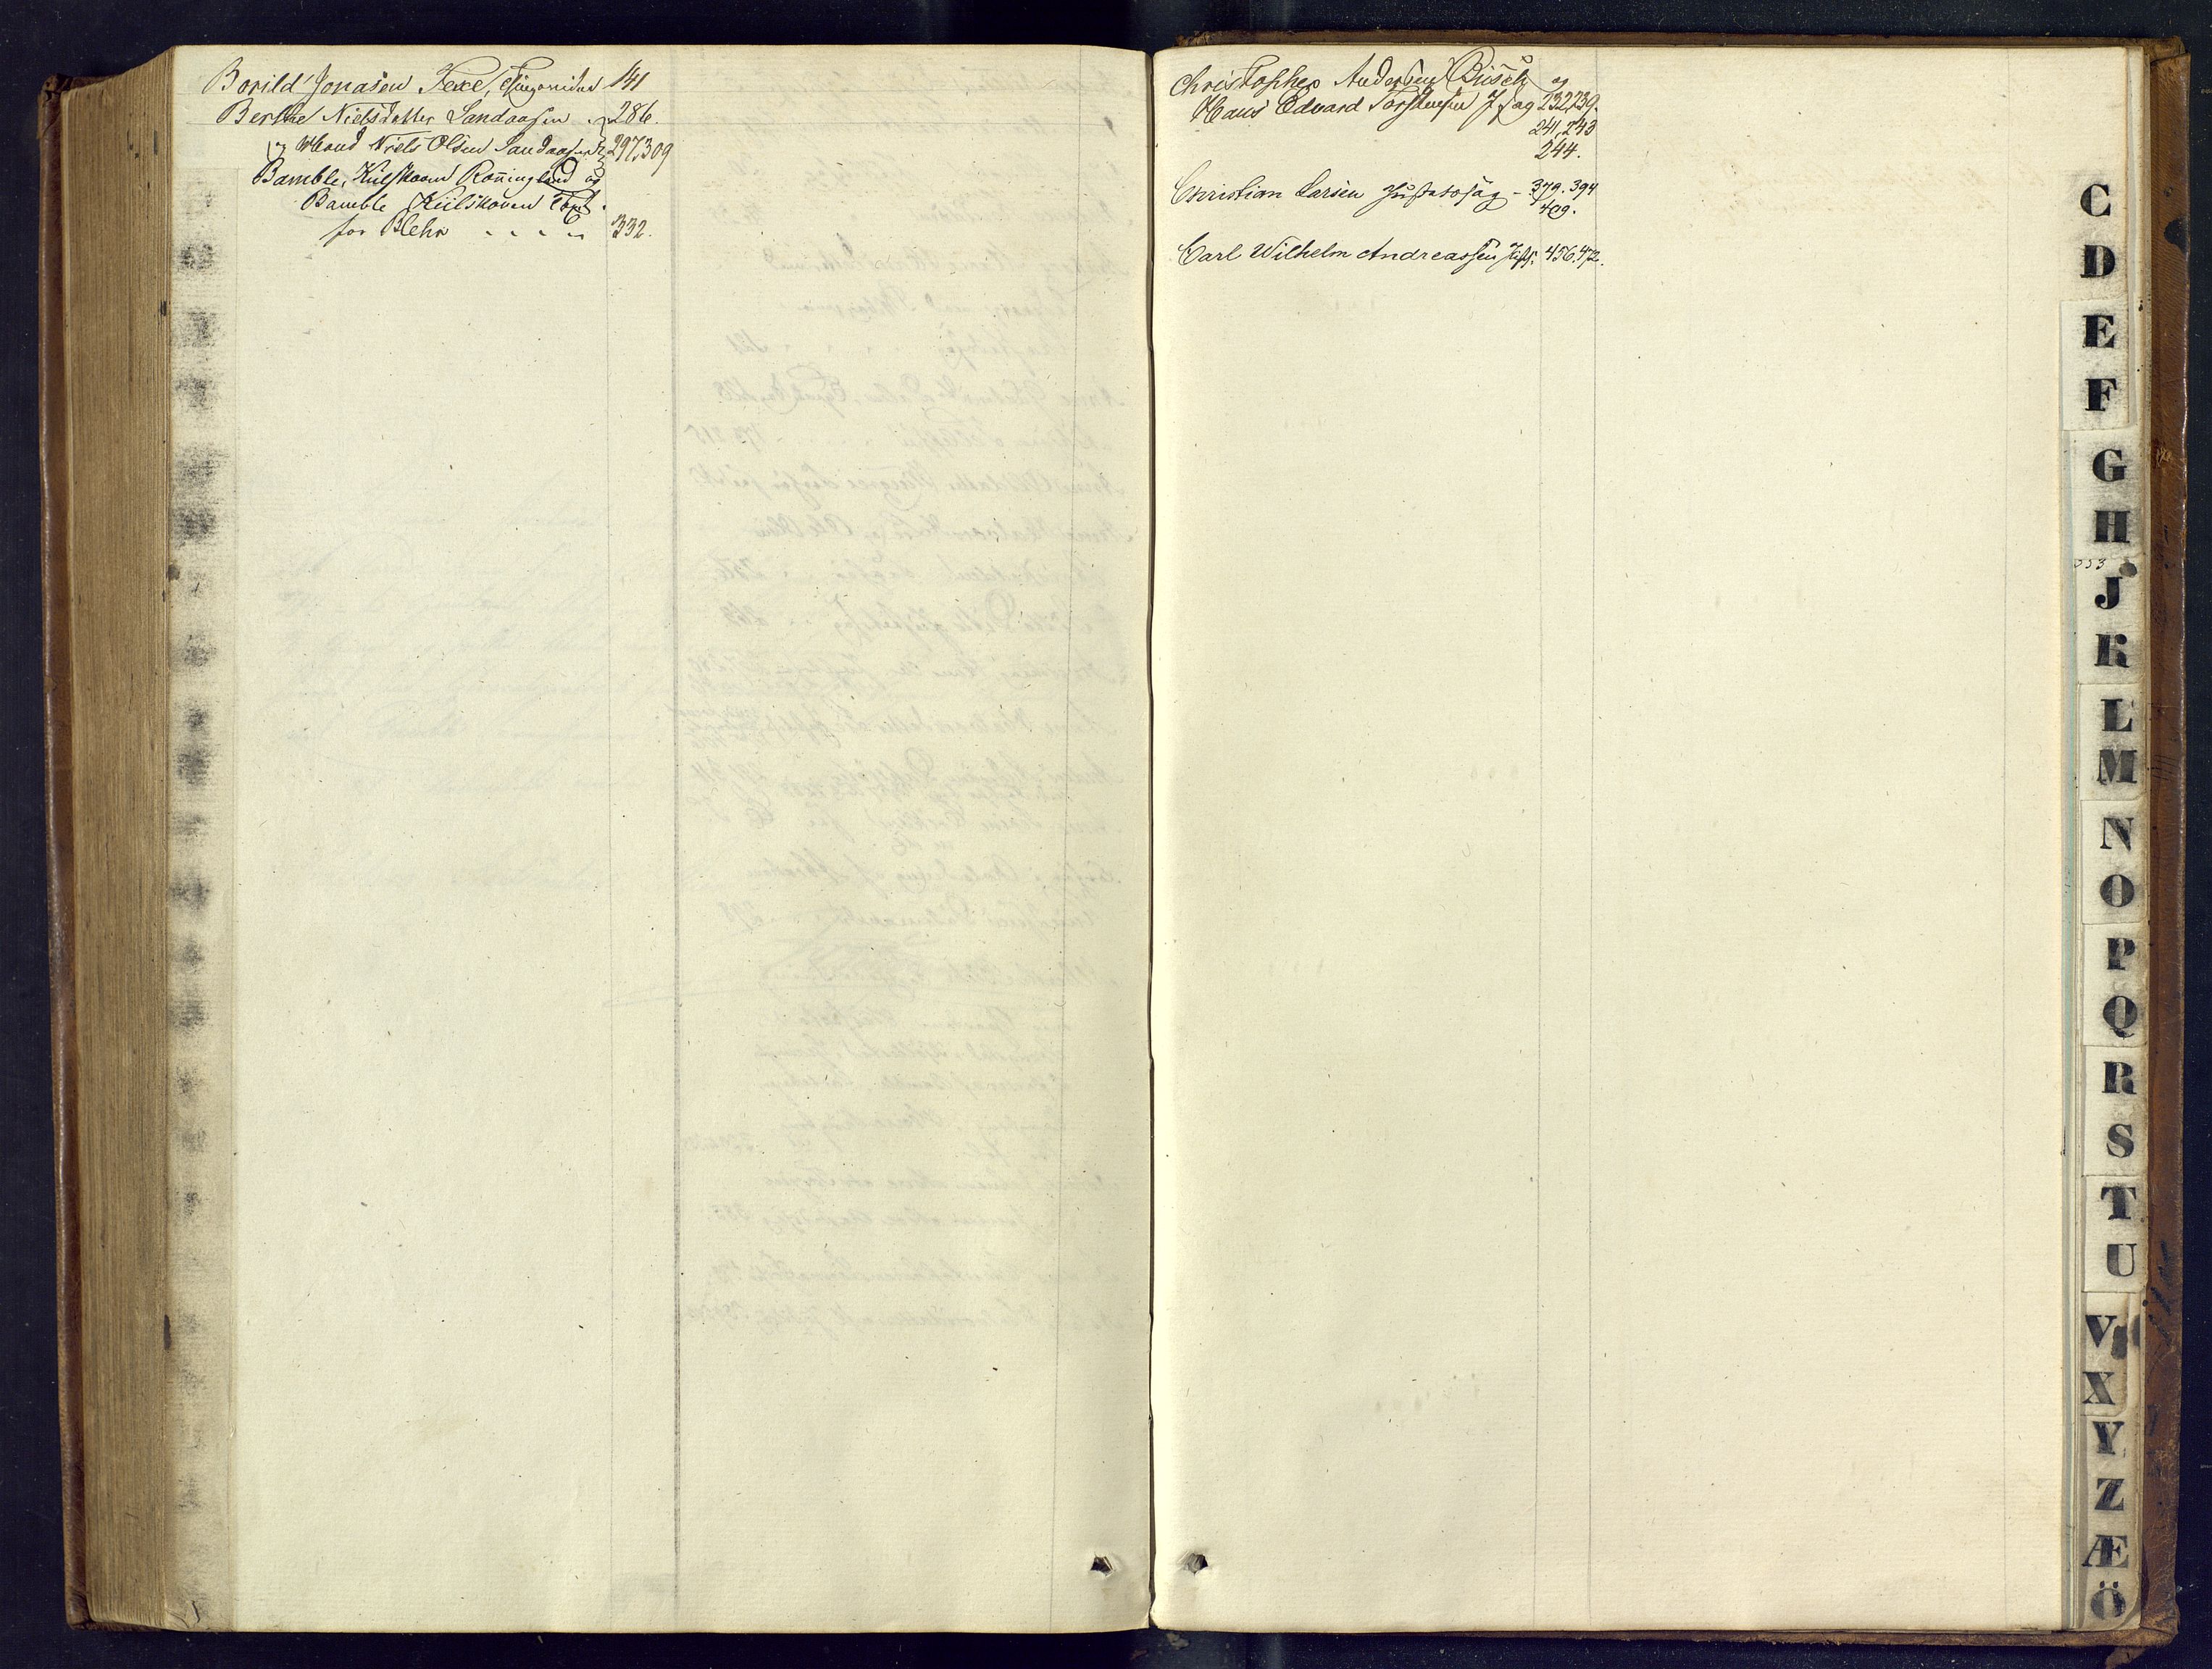 Borild Jonasen Texe, 141
Berthe Nielsdatter Sandaasen 286.
og Mand Niels Olsen Sandaasen 297,309
Bamble, Kiilskoven Ronningland og
Bamble Kiilskoven
for Blehr . . . . 332.
Christopher Andersen Büsch og
Hans Edvard Torstensen J Sag 232,239.
241,243
244.
Christian Larsen Justitssag - 379.394
409.
Carl Wilhelm Andreassen 456.472.
C
D
E
F
G
H
353
J
K
L
M
N
O
P
Q
R
S
T
U
V
X
Y
Z
Æ
Ö